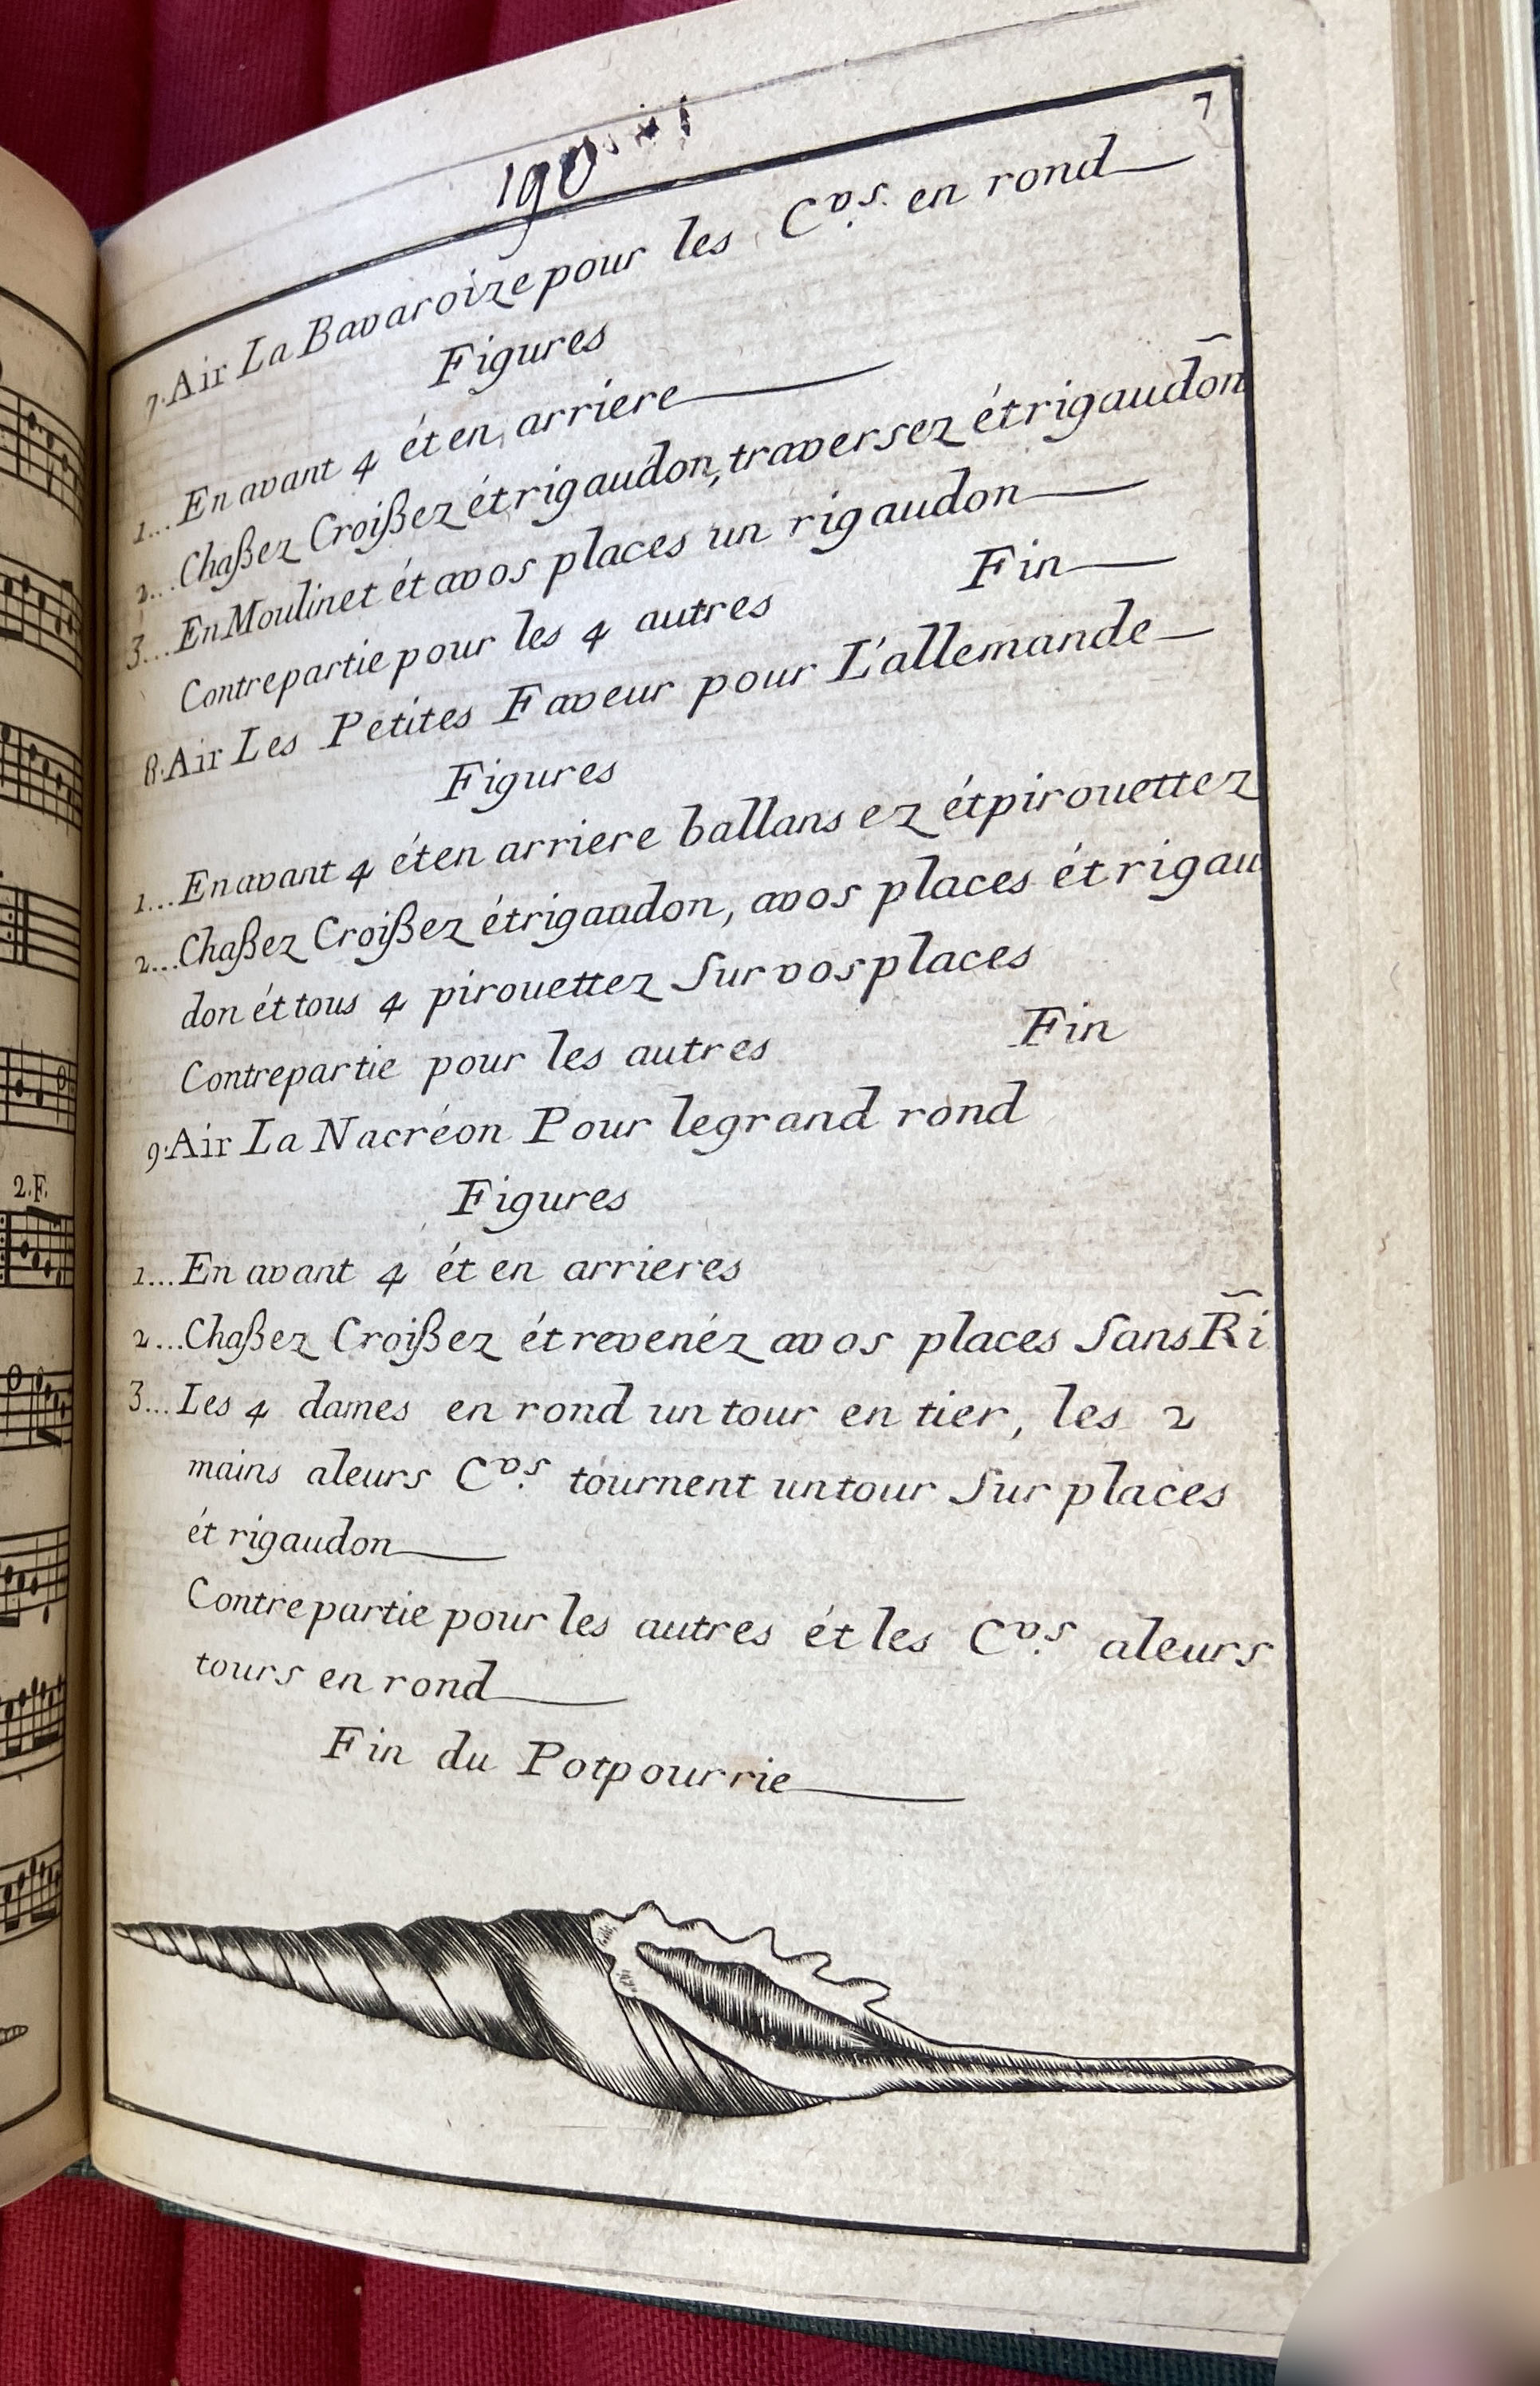 7
190
7. Air La Bavaroize pour les Cvs. en rond
Figures
1... En avant 4 ét en arriere
2... Chaßez Croißez ét rigaudon, traversez ét rigaudon
3... En Moulinet ét a vos places un rigaudon
Contrepartie pour les 4 autres Fin
8. Air Les Petites Faveur pour L'allemande
Figures
1... En avant 4 ét en arriere ballansez ét pirouettez
2... Chaßez Croißez ét rigaudon, a vos places ét rigau
don ét tous 4 pirouettez Sur vos places
Contrepartie pour les autres Fin
9. Air La Nacréon Pour le grand rond
Figures
1... En avant 4 ét en arrieres
2... Chaßez Croißez ét revenéz a vos places Sans Ri
3... Les 4 dames en rond un tour en tier, les 2
mains a leurs Cvs. tournent un tour Sur places
ét rigaudon
Contrepartie pour les autres ét les Cvs. a leurs
tours en rond
Fin du Potpourrie
2.F.